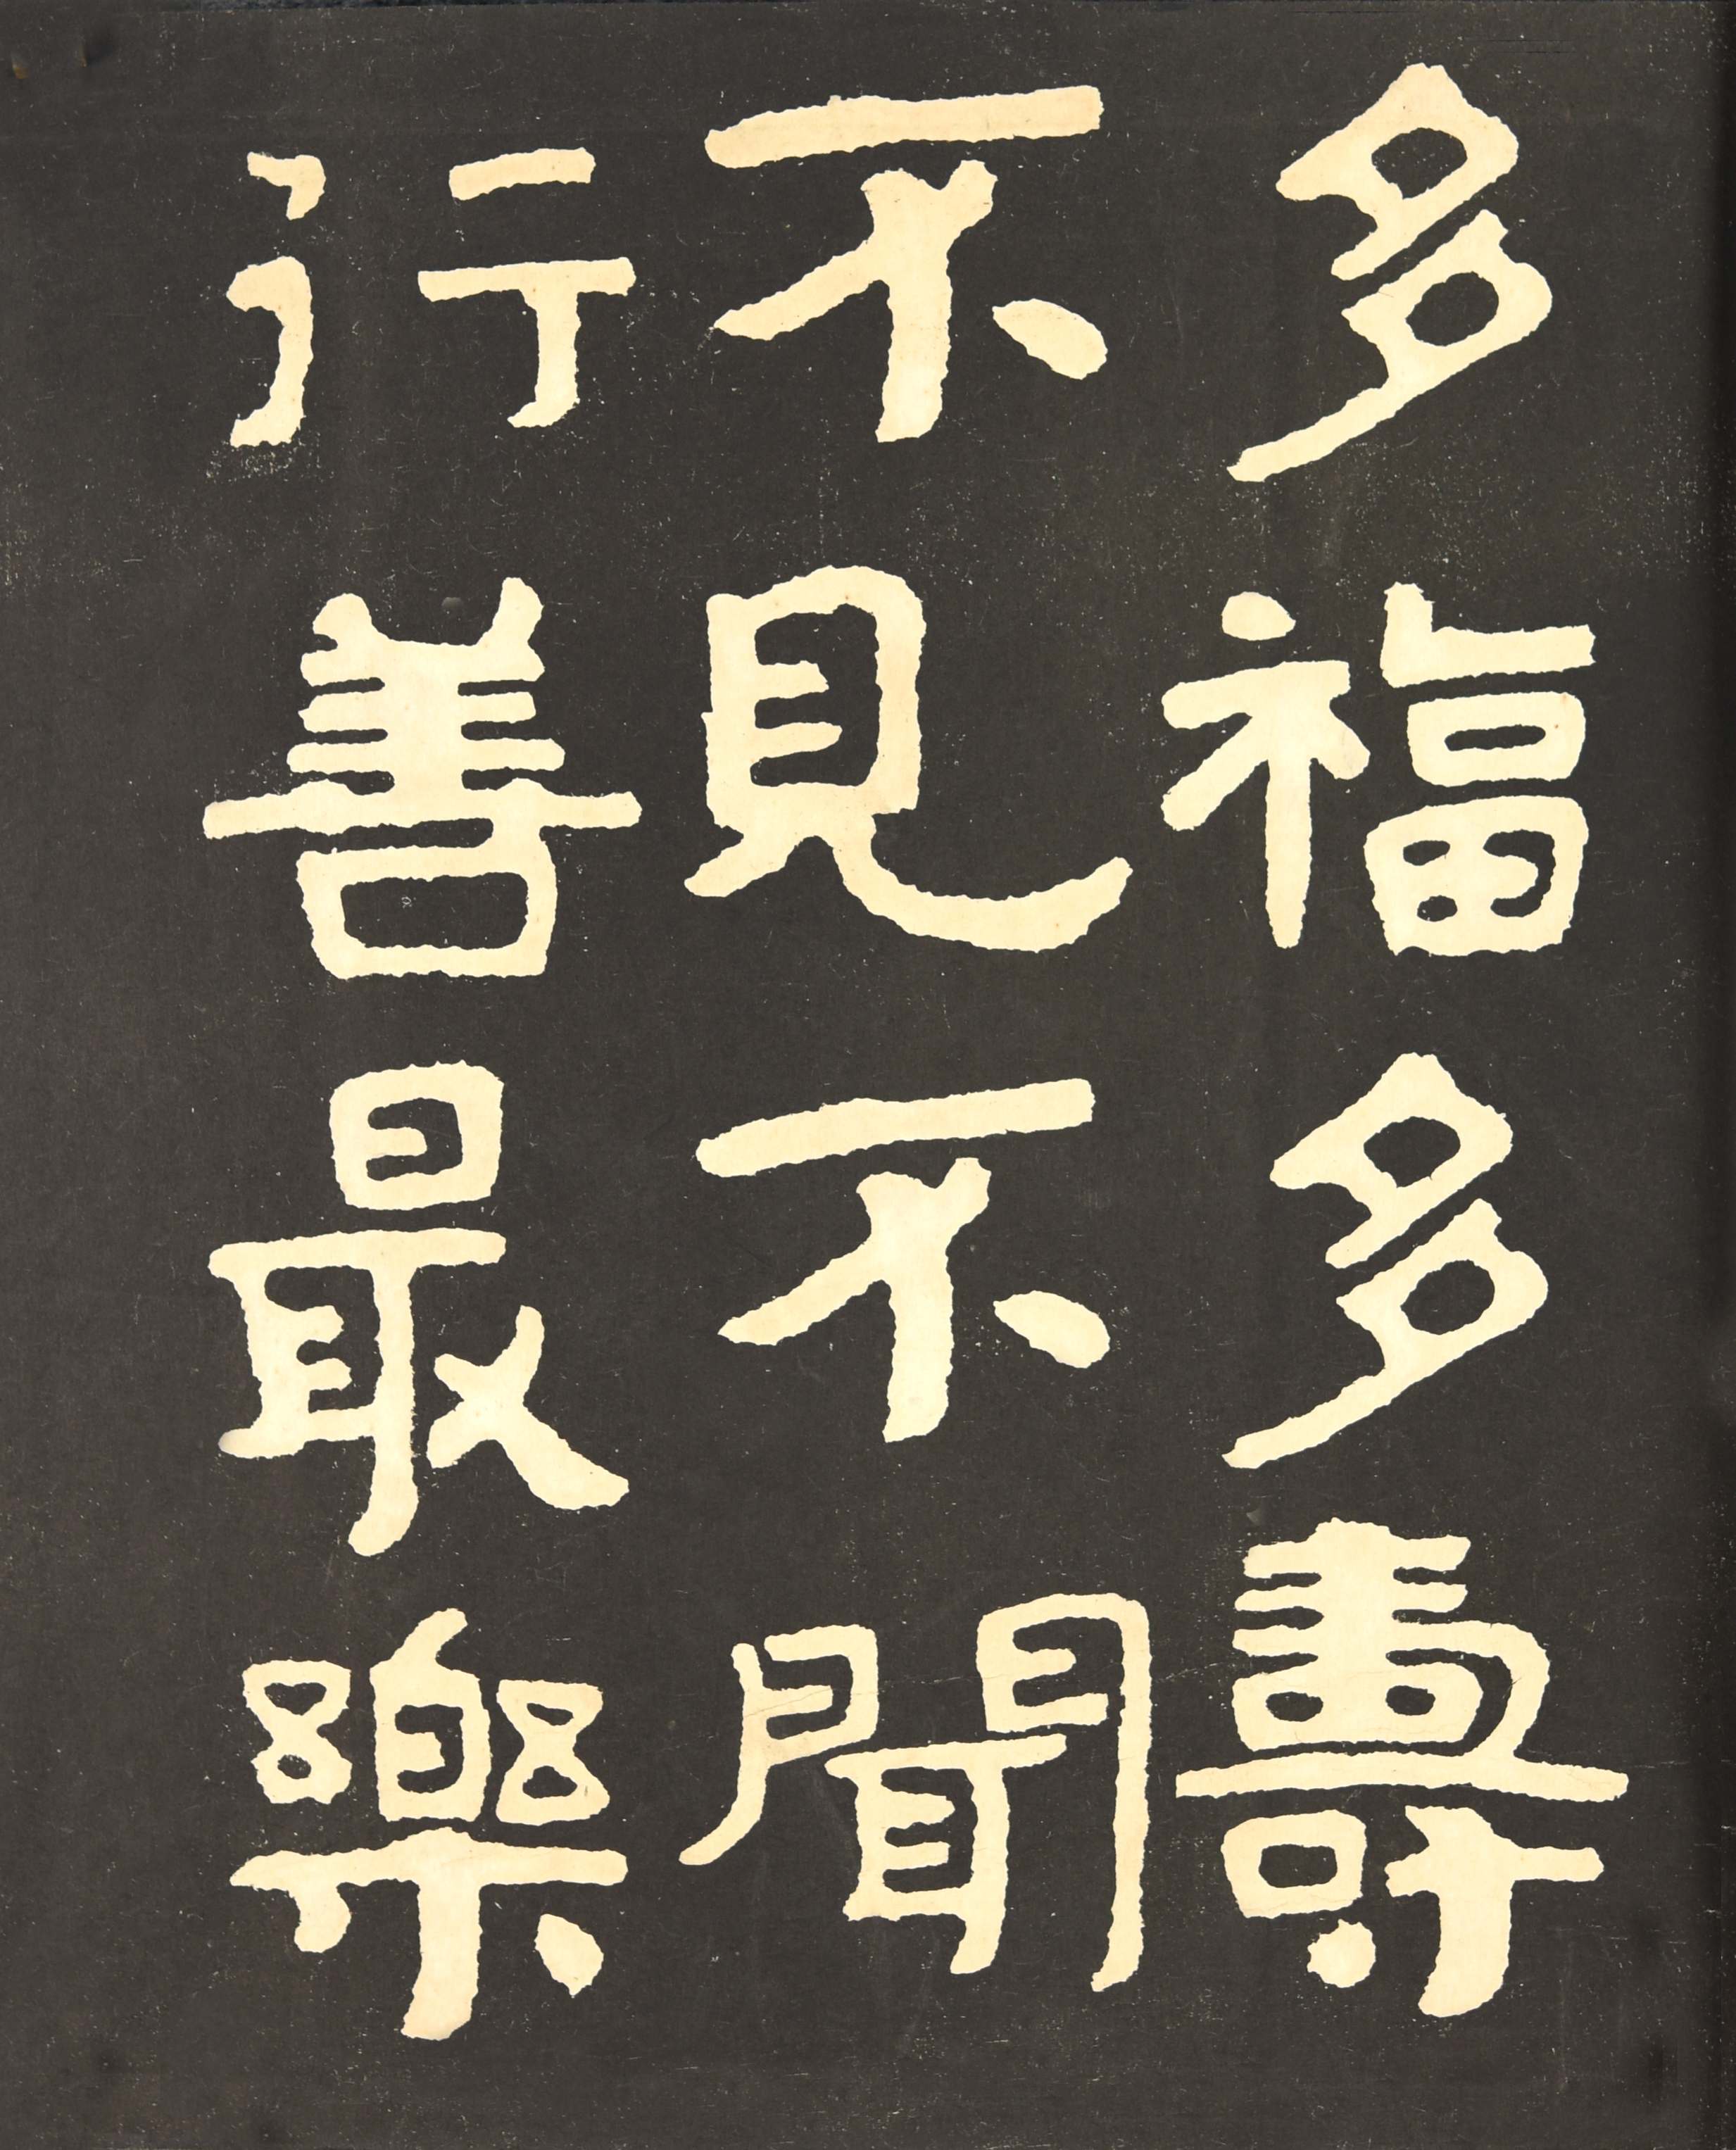 多福多壽
不見不聞
行善最樂